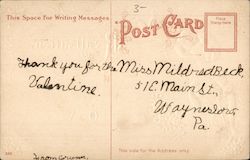 5-
This Space For Writing Messages
POST CARD
Thank you for the
Valentine.
Miss Mildred Beck,
51 E. Main St.,
Waynesboro,
Pa.
This side for the Address only